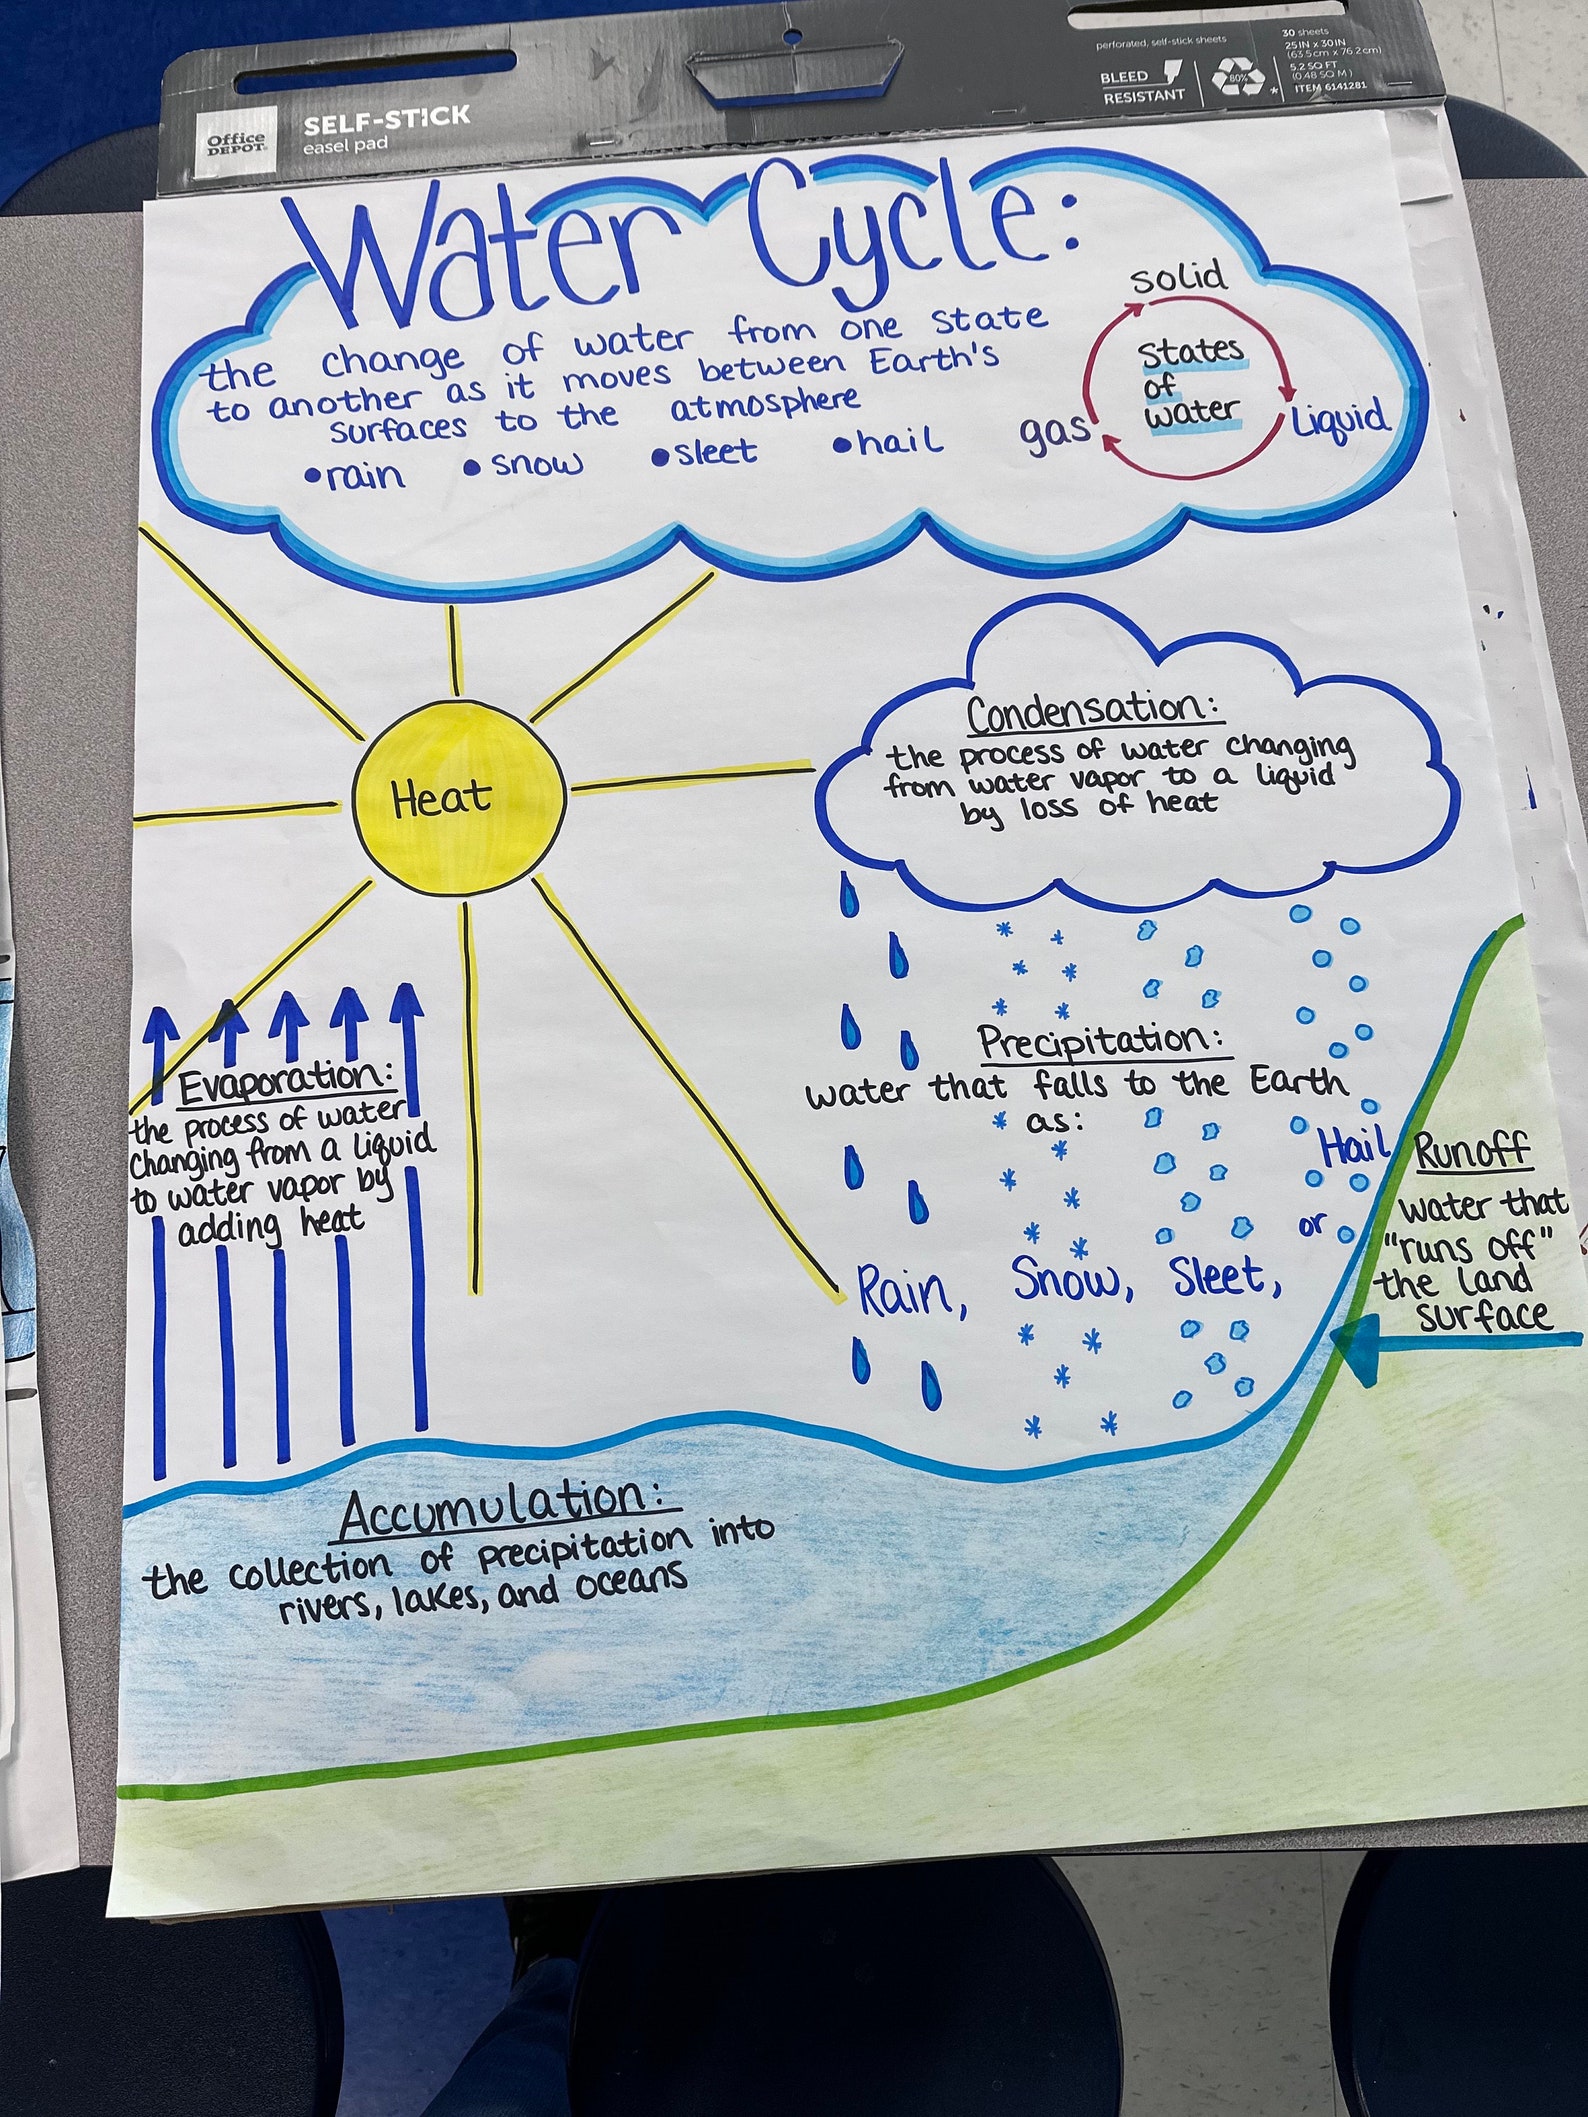 Office DEPOT
SELF-STICK
easel pad
perforated, self-stick sheets
BLEED
RESISTANT
80%
*
30 sheets
25 IN x 30 IN
(63.5 cm x 76.2 cm)
5.2 SQ FT
(0.48 SQ M)
ITEM 6141281
Water Cycle:
the change of water from one state
to another as it moves between Earth's
surfaces to the atmosphere
•rain •snow •sleet •hail
solid
States
of
water
gas
Liquid
Heat
Condensation:
the process of water changing
from water vapor to a liquid
by loss of heat
Evaporation:
the process of water
changing from a liquid
to water vapor by
adding heat
Precipitation:
water that falls to the Earth
as:
Rain, Snow, Sleet,
or
Hail
Runoff
water that
"runs off"
the land
surface
Accumulation:
the collection of precipitation into
rivers, lakes, and oceans